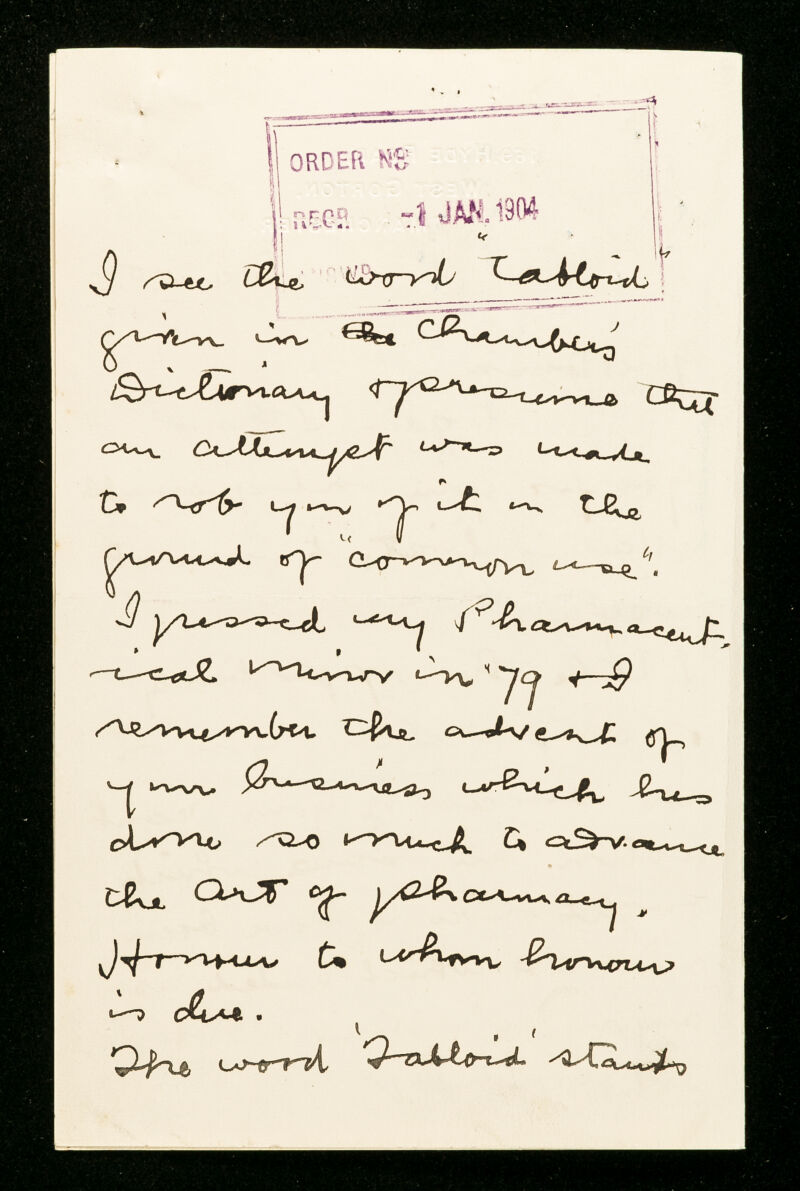 ORDER No
RECD -1 JAN. 1904
I see the word "Tabloid"
given in the Chambers's
Dictionary & presume that
an attempt was made
to rob you of it on the
ground of "common use".
I passed my Pharmaceut-
ical Minor in '79 & I
remember the advent of
your business which has
done so much to advance
the art of pharmacy.
Honour to whom honour
is due.
The word 'Tabloid' stands